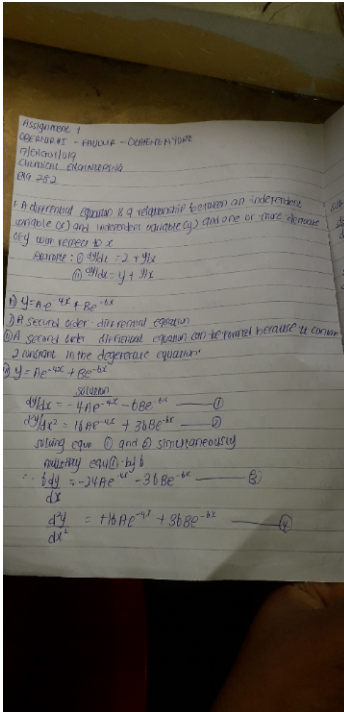 Assignment 1
CHEMICAL ENGINEERING
ENG 282
1. A differential equation is a relationship between an independent
variable (x) and independent variable (y) and one or more derivative
of y with respect to x
Example: (i) dy/dx = 2 + y/x
(ii) dy/dx = y + y/x
2) y = Ae^-4x + Be^-6x
i) A second order differential equation
(ii) A second order differential equation can be formed because it contain
2 constant in the degenerate equation.
y = Ae^-4x + Be^-6x
solution
dy/dx = -4Ae^-4x - 6Be^-6x —— (1)
d²y/dx² = 16Ae^-4x + 36Be^-6x —— (2)
solving equa (1) and (2) simultaneously
multiply equ (1) by 6
∴ 6dy/dx = -24Ae^-4x - 36Be^-6x —— (3)
d²y/dx² = +16Ae^-4x + 36Be^-6x —— (4)